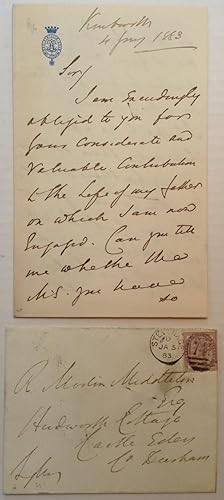 Knebworth
4 Jany 1883
Sir,
I am Exceedingly
obliged to you for
your Considerate and
Valuable Contribution
to the Life of my father
on which I am now
Engaged. Can you tell
me whether the
M.S. you
so
JA 5
83
R Morton Middleton
Esq
Hudworth Cottage
Castle Eden
Co Durham